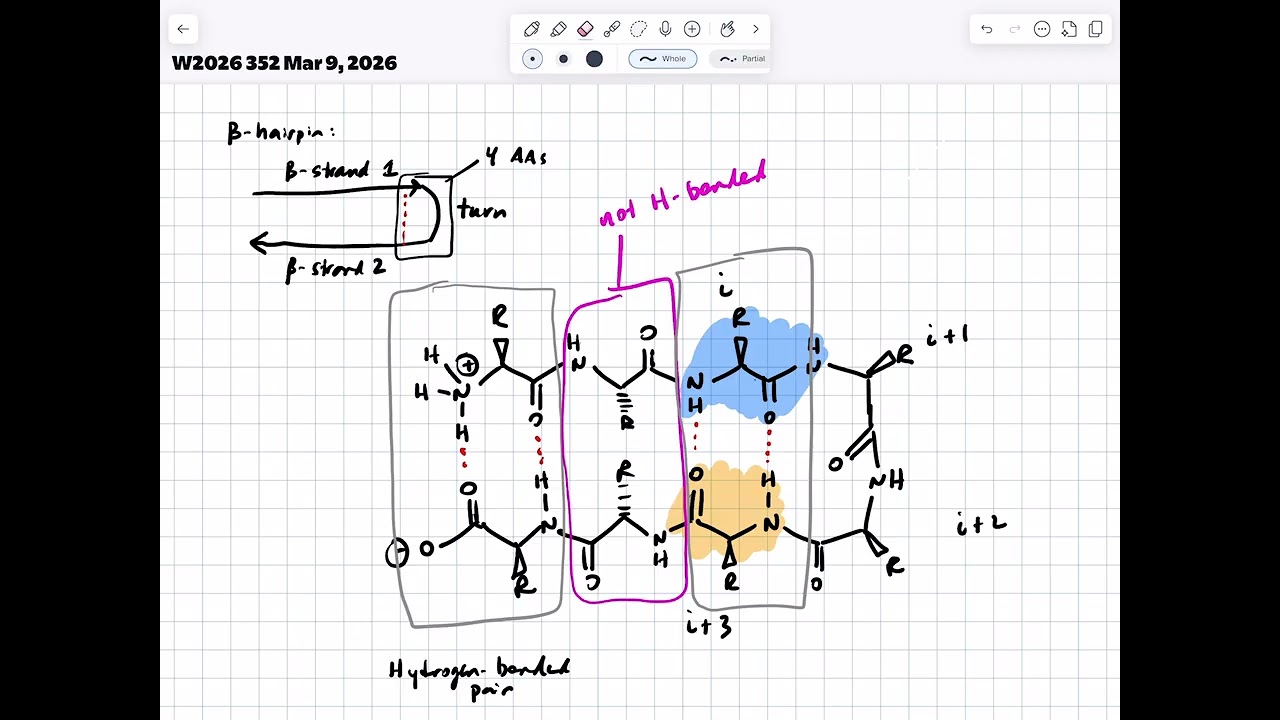 W2026 352 Mar 9, 2026
Whole
Partial
β-hairpin:
β-strand 1
4 AAs
turn
β-strand 2
not H-bonded
i
i+1
R
O
R
H
H
N
H
N
R
H
⊕
N
H
H
O
R
O
N
H
O
O
NH
R
O
H
O
H
i+2
N
N
N
H
⊖
O
R
O
R
O
R
i+3
Hydrogen-bonded
pair